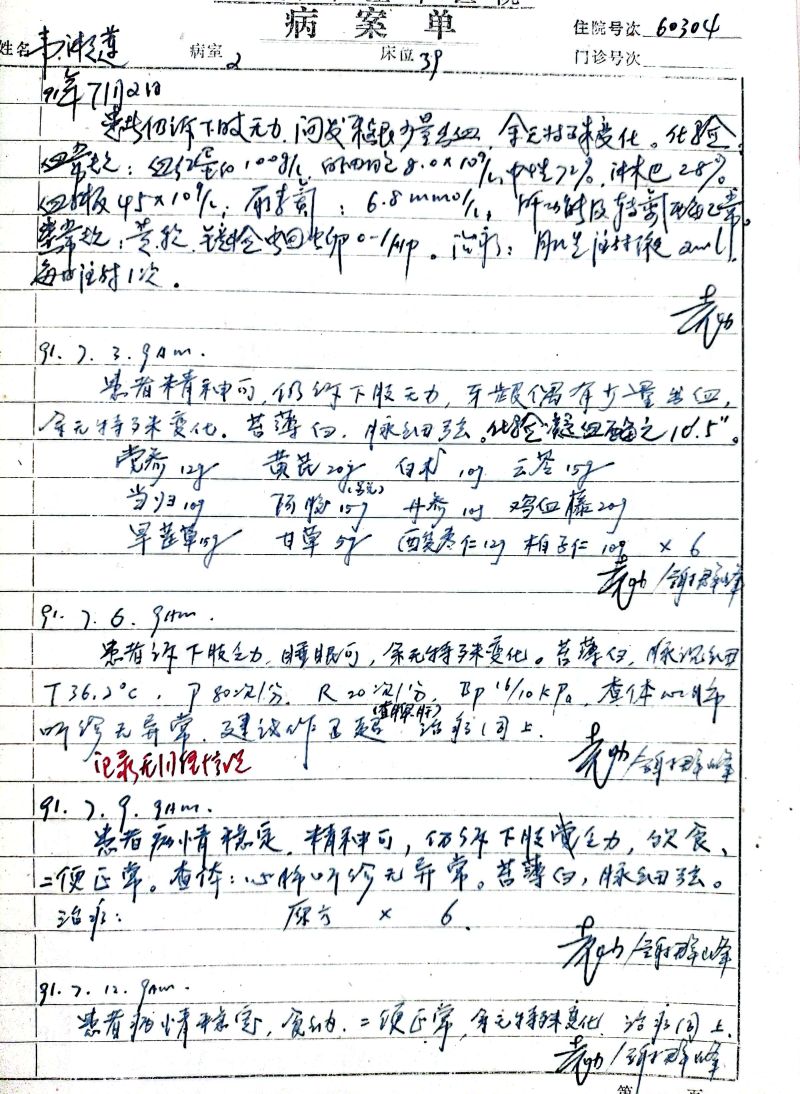 病案单
住院号次 60304
姓名 病室 2 床位 39 门诊号次
91年7月2日
患者仍诉下肢无力,间发牙龈少量出血,余无特殊变化。化验
血常规:血红蛋白100g/L 白细胞8.0×10⁹/L,中性72%,淋巴28%。
血小板45×10⁹/L;尿素氮:6.8mmol/L,肝功能及转氨酶正常。
粪常规:黄软,镜检蛔虫卵0-1/HP。治疗: 注射液2ml
每日注射1次。
91.7.3.9Am.
患者精神可,仍诉下肢无力,牙龈偶有少量出血,
余无特殊变化。苔薄白,脉细弦。化验:凝血 1'0.5"。
党参12g 黄芪20g 白术10g 云苓15g
当归10g 阿胶15g 丹参10g 鸡血藤20g
旱莲草15g 甘草5g 酸枣仁12g 柏子仁10g ×6
91.7.6.9Am.
患者诉下肢乏力,睡眠可,余无特殊变化。苔薄白,脉沉细
T36.2°C,P80次/分,R20次/分,Bp16/10kPa,查体心肺
(查脾.肝)
听诊无异常,建议作B超 治疗同上.
91.7.9.9Am.
患者病情稳定,精神可,仍诉下肢乏力,饮食、
二便正常。查体:心肺听诊无异常。苔薄白,脉细弦。
治疗: 原方 × 6.
91.7.12.9Am.
患者病情稳定,食纳、二便正常,余无特殊变化 治疗同上.
第 页